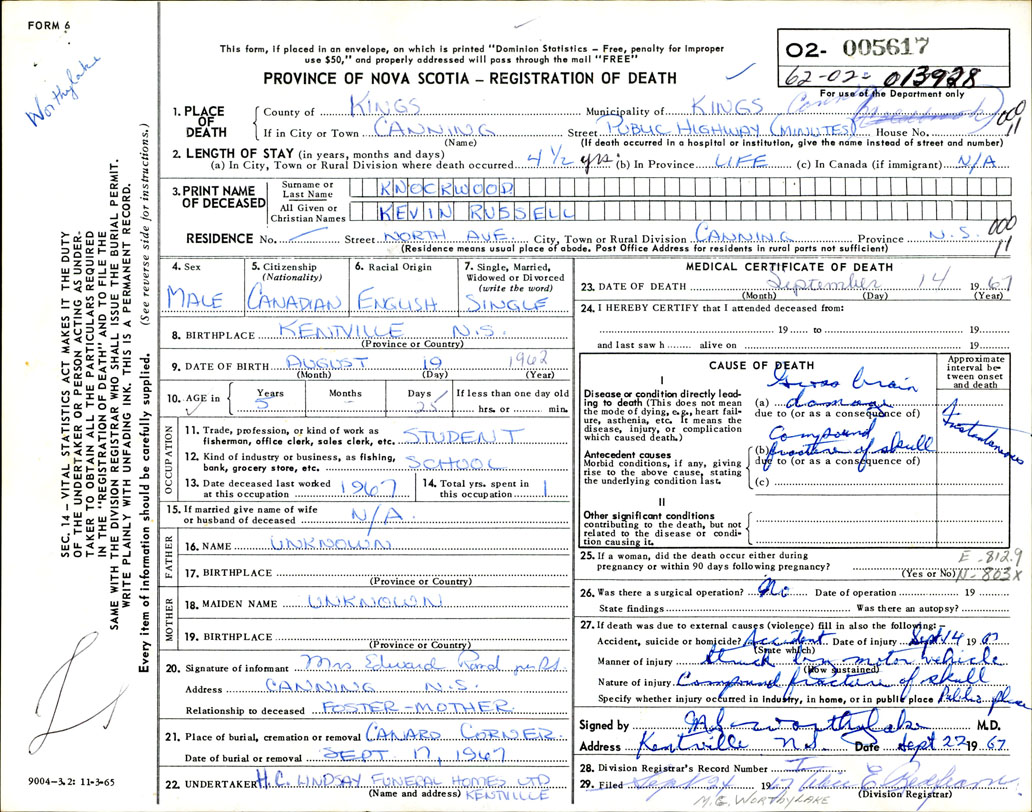 FORM 6
Worthylake
This form, if placed in an envelope, on which is printed "Dominion Statistics – Free, penalty for improper
use $50," and properly addressed will pass through the mail "FREE"
PROVINCE OF NOVA SCOTIA – REGISTRATION OF DEATH
02- 005617
62-02- 013928
For use of the Department only
1. PLACE OF DEATH
County of KINGS Municipality of KINGS County
If in City or Town CANNING Street PUBLIC HIGHWAY (MINUTES) House No.
000
11
(Name) (If death occurred in a hospital or institution, give the name instead of street and number)
2. LENGTH OF STAY (in years, months and days)
(a) In City, Town or Rural Division where death occurred 4 1/2 yrs. (b) In Province LIFE (c) In Canada (if immigrant) N/A
3. PRINT NAME OF DECEASED
Surname or Last Name KNOCKWOOD
All Given or Christian Names KEVIN RUSSELL
RESIDENCE No. Street NORTH AVE. City, Town or Rural Division CANNING Province N.S.
000
11
(Residence means usual place of abode. Post Office Address for residents in rural parts not sufficient)
4. Sex MALE
5. Citizenship (Nationality) CANADIAN
6. Racial Origin ENGLISH
7. Single, Married, Widowed or Divorced (write the word) SINGLE
8. BIRTHPLACE KENTVILLE N.S.
(Province or Country)
9. DATE OF BIRTH AUGUST 19 1962
(Month) (Day) (Year)
10. AGE in Years 5 Months Days 25 If less than one day old hrs. or min.
OCCUPATION
11. Trade, profession, or kind of work as
fisherman, office clerk, sales clerk, etc. STUDENT
12. Kind of industry or business, as fishing,
bank, grocery store, etc. SCHOOL
13. Date deceased last worked
at this occupation 1967
14. Total yrs. spent in
this occupation 1
15. If married give name of wife
or husband of deceased N/A.
FATHER
16. NAME UNKNOWN
17. BIRTHPLACE
(Province or Country)
MOTHER
18. MAIDEN NAME UNKNOWN
19. BIRTHPLACE
(Province or Country)
20. Signature of informant Mrs Edward Rand
Address CANNING N.S.
Relationship to deceased FOSTER-MOTHER
21. Place of burial, cremation or removal CANARD CORNER
Date of burial or removal SEPT 17, 1967
22. UNDERTAKER H.C. LINDSAY FUNERAL HOMES LTD
(Name and address) KENTVILLE
MEDICAL CERTIFICATE OF DEATH
23. DATE OF DEATH September 14 1967
(Month) (Day) (Year)
24. I HEREBY CERTIFY that I attended deceased from:
19 to 19
and last saw h alive on 19
CAUSE OF DEATH
Approximate interval between onset and death
I
Disease or condition directly leading to death (This does not mean
the mode of dying, e.g., heart failure, asthenia, etc. It means the
disease, injury, or complication
which caused death.)
(a) Gross brain damage
due to (or as a consequence of)
Instantaneous
Antecedent causes
Morbid conditions, if any, giving
rise to the above cause, stating
the underlying condition last.
(b) Compound fracture of skull
due to (or as a consequence of)
(c)
II
Other significant conditions
contributing to the death, but not
related to the disease or condition causing it.
25. If a woman, did the death occur either during
pregnancy or within 90 days following pregnancy?
(Yes or No)
E-812.9
N-803X
26. Was there a surgical operation? No Date of operation 19
State findings Was there an autopsy?
27. If death was due to external causes (violence) fill in also the following:–
Accident, suicide or homicide? Accident Date of injury Sept 14 1967
(State which)
Manner of injury Struck by motor vehicle
(How sustained)
Nature of injury Compound fracture of skull
Specify whether injury occurred in industry, in home, or in public place Public place
Signed by M G Worthylake M.D.
Address Kentville N.S. Date Sept 22 1967
28. Division Registrar's Record Number
29. Filed Sept 24 1967
(Division Registrar)
M.G. WORTHYLAKE
SEC. 14 – VITAL STATISTICS ACT MAKES IT THE DUTY
OF THE UNDERTAKER OR PERSON ACTING AS UNDERTAKER TO OBTAIN ALL THE PARTICULARS REQUIRED
IN THE "REGISTRATION OF DEATH" AND TO FILE THE
SAME WITH THE DIVISION REGISTRAR WHO SHALL ISSUE THE BURIAL PERMIT.
WRITE PLAINLY WITH UNFADING INK. THIS IS A PERMANENT RECORD.
Every item of information should be carefully supplied. (See reverse side for instructions.)
9004-3.2: 11-3-65